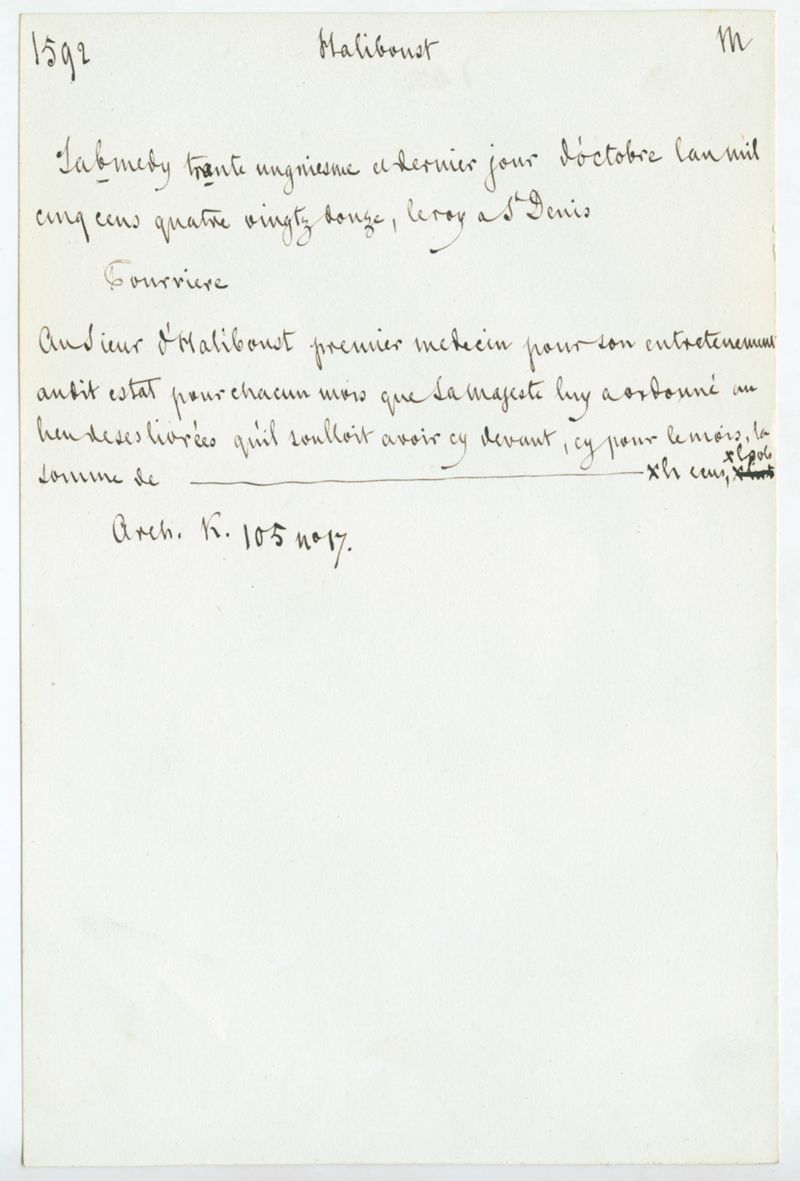 1592 Haliboust M
Sabmedy trante ungniesme et dernier jour d'octobre lan mil
cinq cens quatre vingtz donze, le roy a St Denis
Fourriere
Au Sieur d'Haliboust premier medecin pour son entretenement
audit estat pour chacun mois que Sa Majeste luy a ordonné au
lieu de ses livrées qu'il soulloit avoir cy devant, cy pour le mois, la
somme de ——— escus,
Arch. K. 105 no 17.